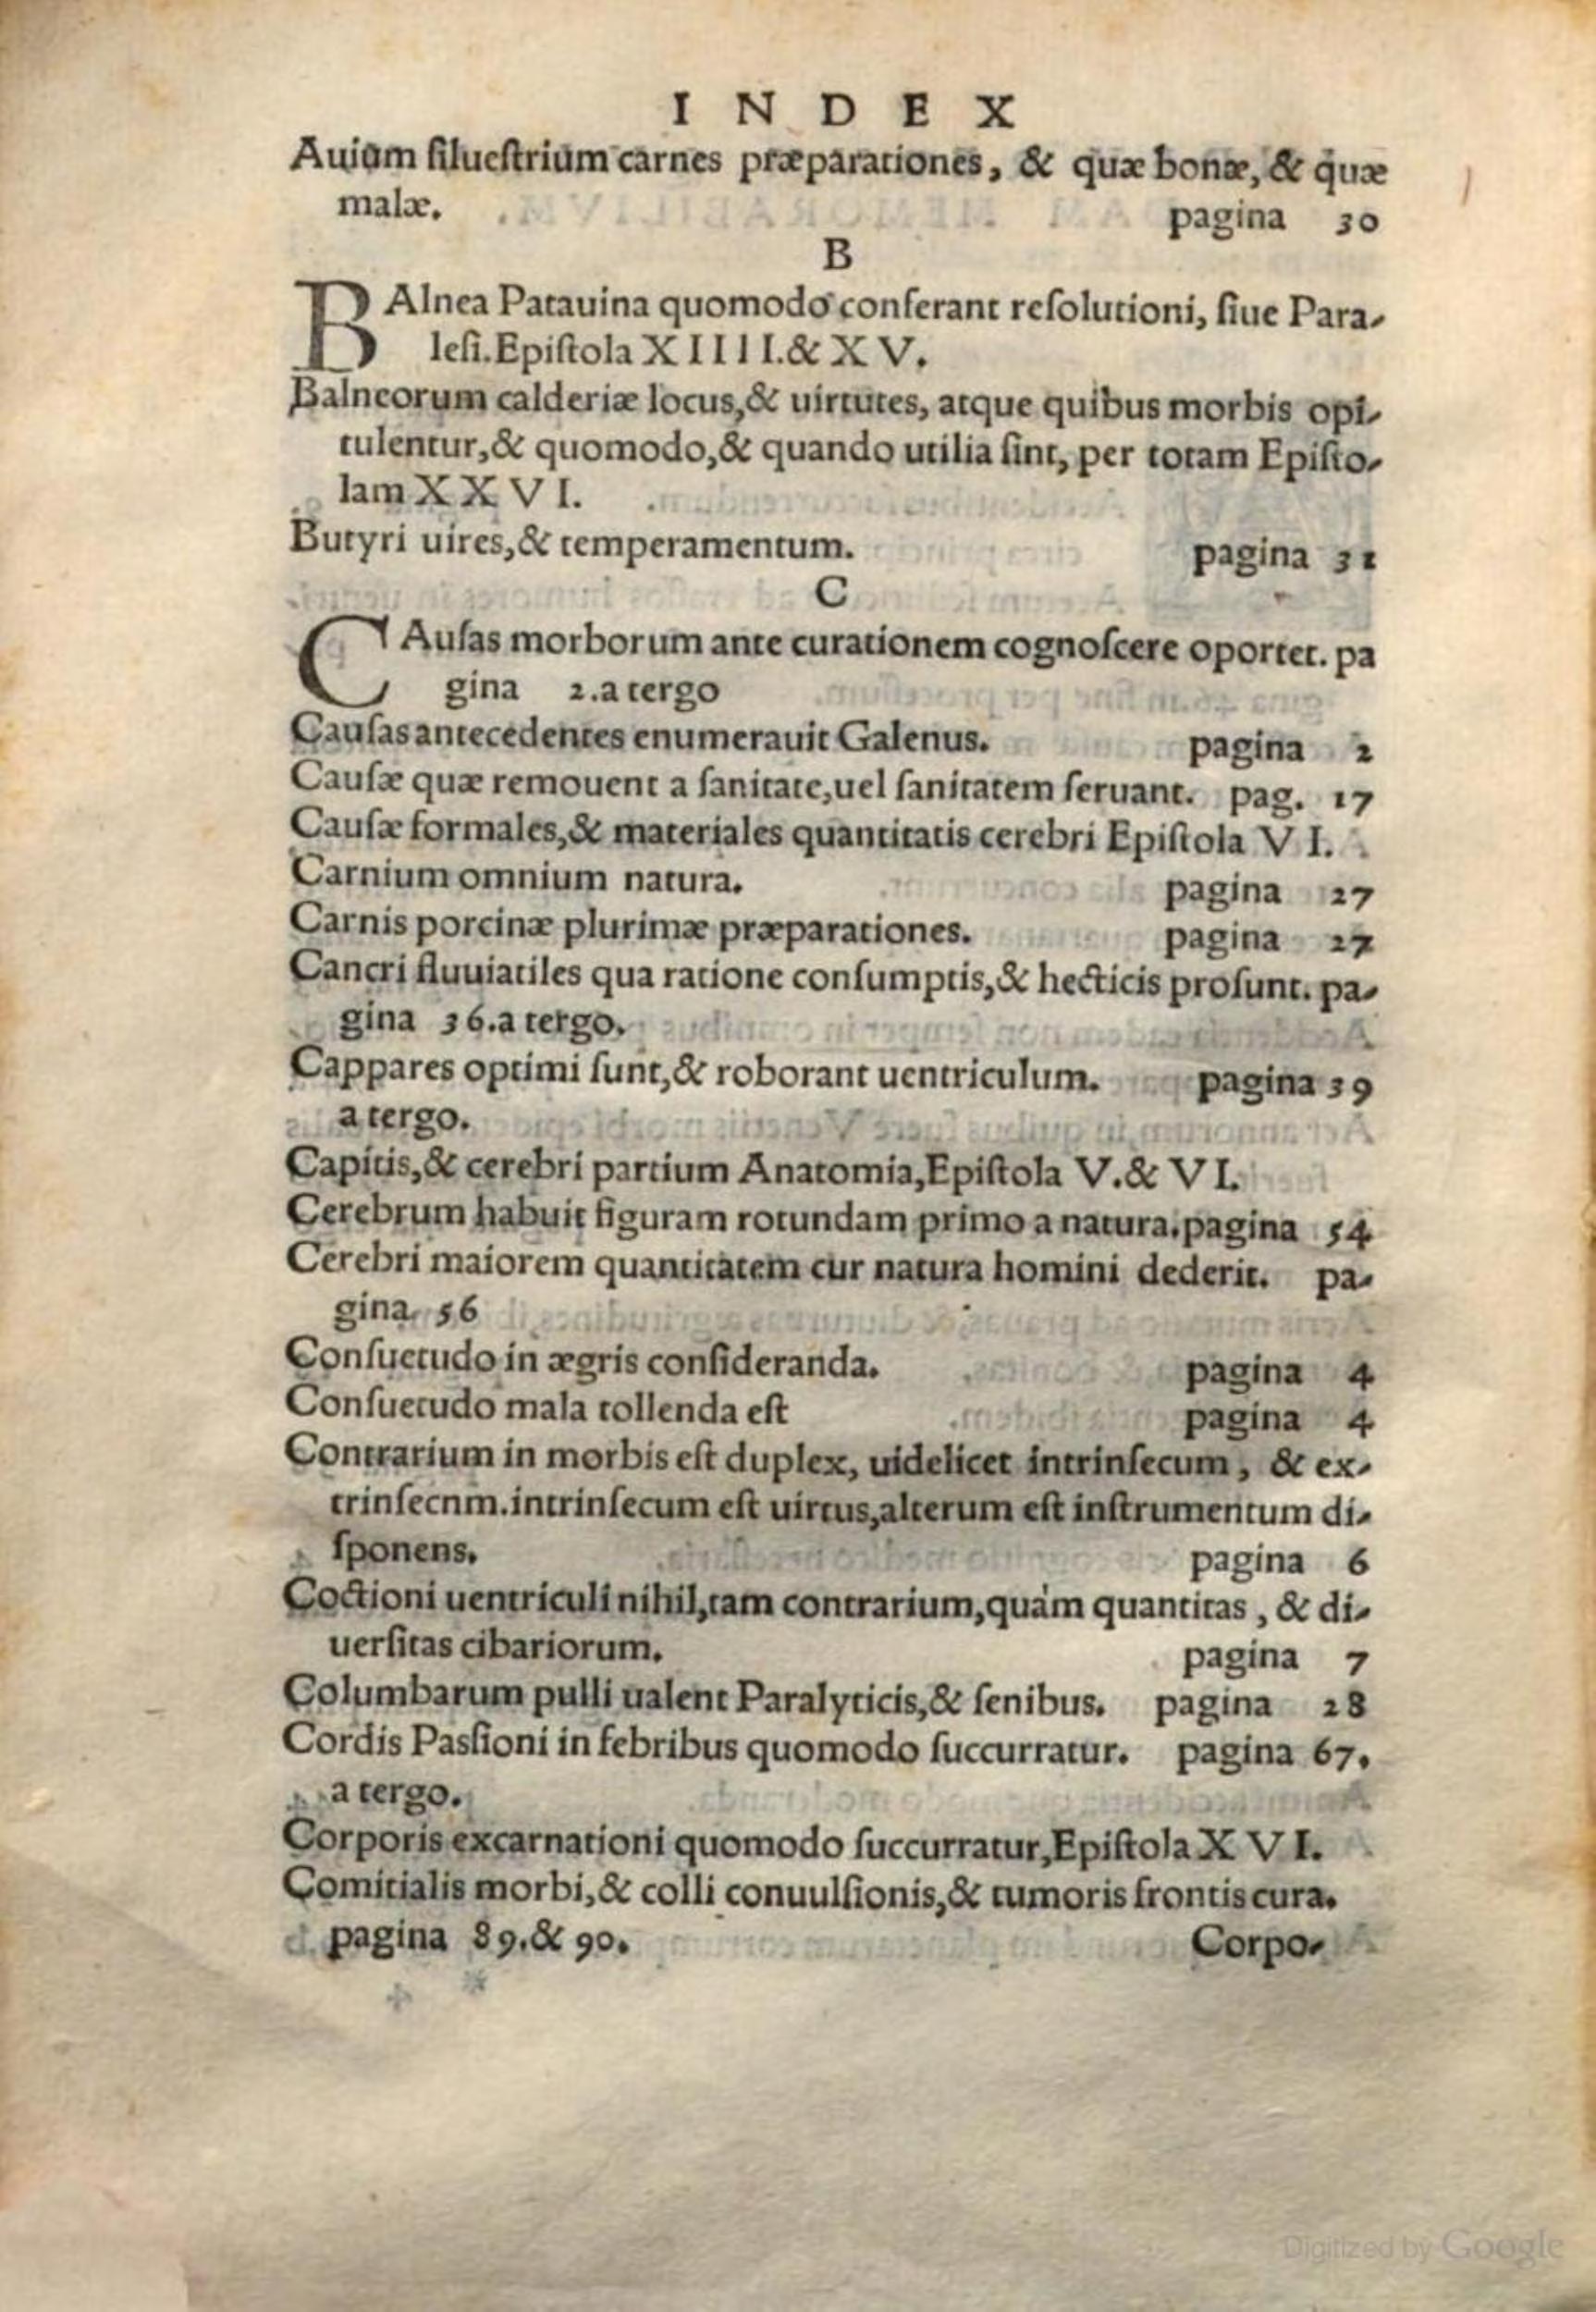 INDEX
Auium ſilueſtrium carnes præparationes, & quæ bonæ, & quæ
malæ. pagina 30
B
BAlnea Patauina quomodo conferant reſolutioni, ſiue Para-
leſi. Epiſtola XIIII. & XV.
Balneorum calderiæ locus, & uirtutes, atque quibus morbis opi-
tulentur, & quomodo, & quando utilia ſint, per totam Epiſto-
lam XXVI.
Butyri uires, & temperamentum. pagina 31
C
CAuſas morborum ante curationem cognoſcere oportet. pa
gina 2. a tergo
Cauſas antecedentes enumerauit Galenus. pagina 2
Cauſæ quæ remouent a ſanitate, uel ſanitatem ſeruant. pag. 17
Cauſæ formales, & materiales quantitatis cerebri Epiſtola VI.
Carnium omnium natura. pagina 27
Carnis porcinæ plurimæ præparationes. pagina 27
Cancri fluuiatiles qua ratione conſumptis, & hecticis proſunt. pa-
gina 36. a tergo.
Cappares optimi ſunt, & roborant uentriculum. pagina 39
a tergo.
Capitis, & cerebri partium Anatomia, Epiſtola V. & VI.
Cerebrum habuit figuram rotundam primo a natura. pagina 54
Cerebri maiorem quantitatem cur natura homini dederit. pa-
gina 56
Conſuetudo in ægris conſideranda. pagina 4
Conſuetudo mala tollenda eſt pagina 4
Contrarium in morbis eſt duplex, uidelicet intrinſecum, & ex-
trinſecnm. intrinſecum eſt uirtus, alterum eſt inſtrumentum di-
ſponens. pagina 6
Coctioni uentriculi nihil, tam contrarium, quàm quantitas, & di-
uerſitas cibariorum. pagina 7
Columbarum pulli ualent Paralyticis, & ſenibus. pagina 28
Cordis Paſſioni in febribus quomodo ſuccurratur. pagina 67.
a tergo.
Corporis excarnationi quomodo ſuccurratur, Epiſtola XVI.
Comitialis morbi, & colli conuulſionis, & tumoris frontis cura.
pagina 89. & 90. Corpo-
Digitized by Google